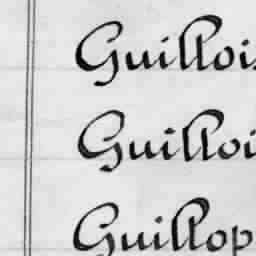 Guillois
Guilloi
Guillop